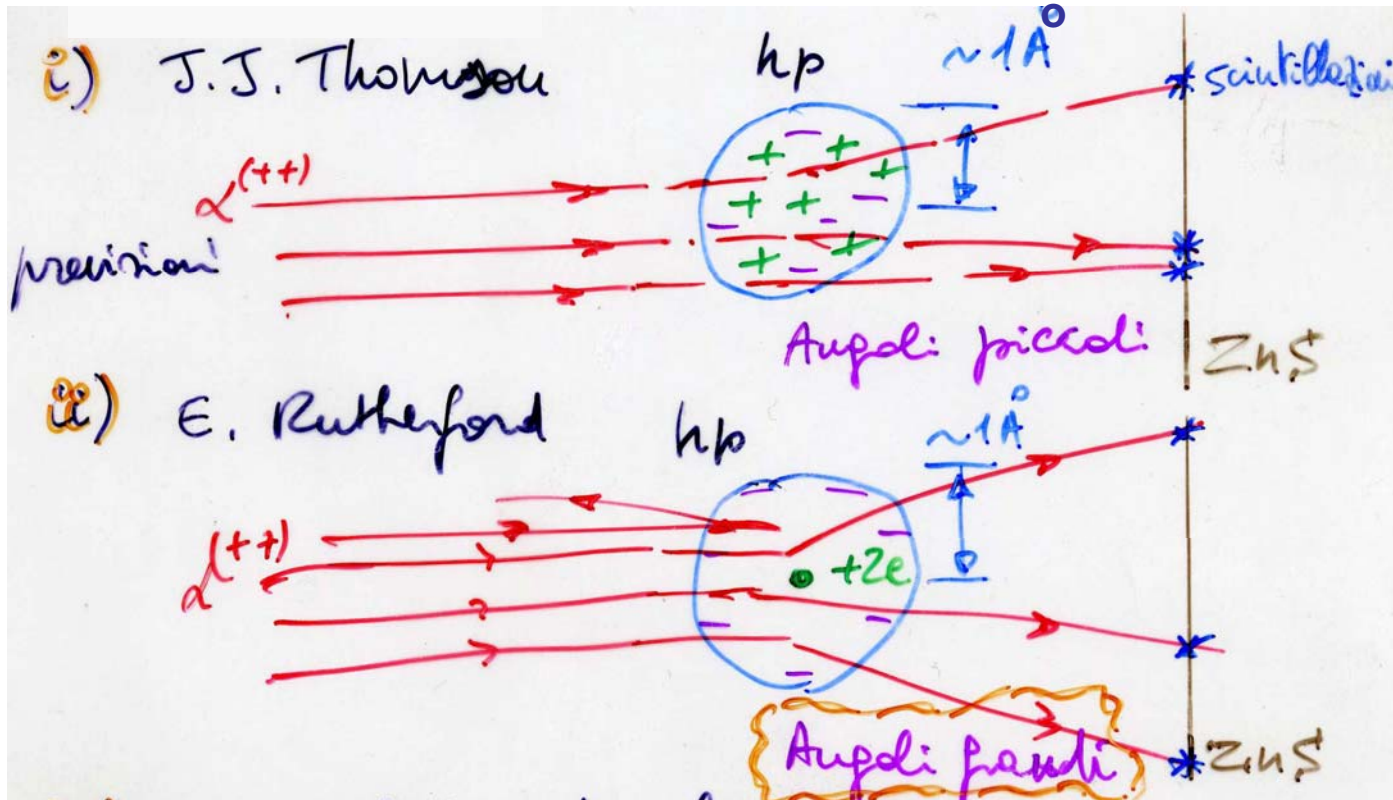 i) J.J. Thomson hp ~1Å scintillazioni
α(++)
previsioni
Angoli piccoli
ZnS
ii) E. Rutherford hp ~1Å
α(++)
+Ze
Angoli grandi
ZnS